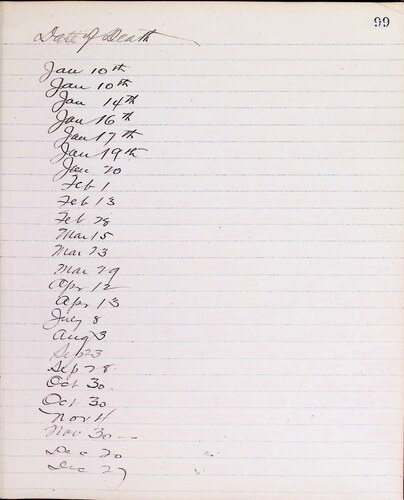 99
Date of Death
Jan 10th
Jan 10th
Jan 14th
Jan 16th
Jan 17th
Jan 19th
Jan 20
Feb 1
Feb 13
Feb 28
Mar 15
Mar 23
Mar 29
Apr 12
Apr 13
July 8
Aug 3
Sep 23
Sep 28
Oct 30
Oct 30
Nov 4
Nov 30
Dec 20
Dec 27